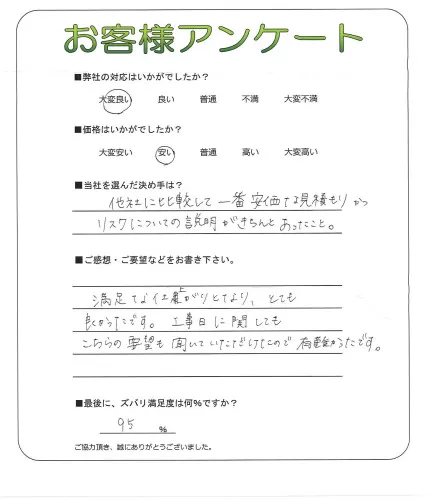 お客様アンケート
■弊社の対応はいかがでしたか？
大変良い 良い 普通 不満 大変不満
■価格はいかがでしたか？
大変安い 安い 普通 高い 大変高い
■当社を選んだ決め手は？
他社に比較して一番安価な見積もりかつ
リスクについての説明がきちんとあったこと。
■ご感想・ご要望などをお書き下さい。
満足な仕上がりとなり、とても
良かったです。工事日に関しても
こちらの要望も聞いていただけたので有難かったです。
■最後に、ズバリ満足度は何％ですか？
95 %
ご協力頂き、誠にありがとうございました。